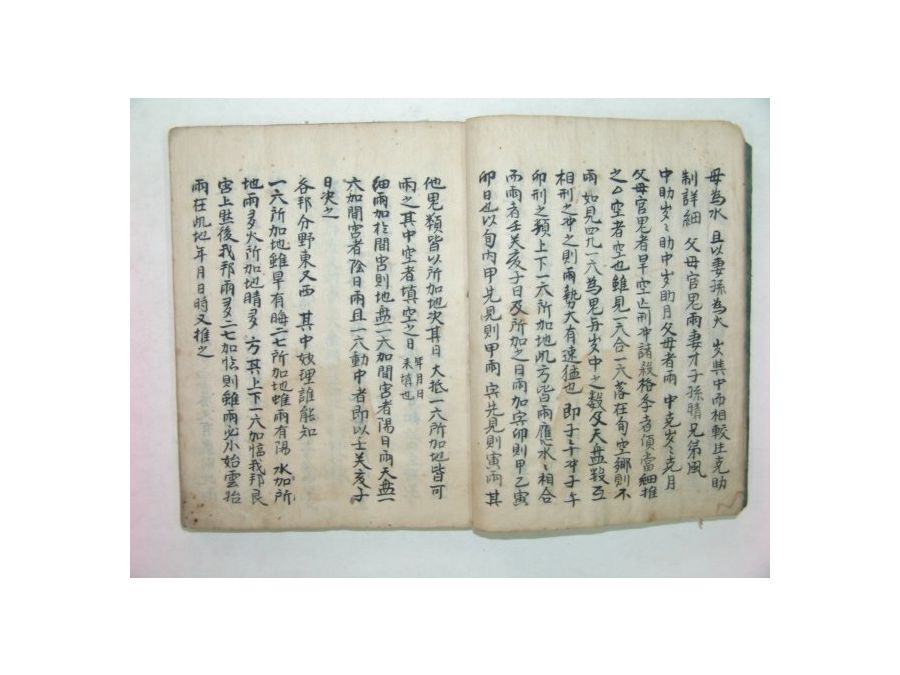 母為水 且以妻孫為火 岁其中而相較生克助
制詳細 父母官鬼雨妻才子孫晴兄弟風
中助岁岁助中岁助月父母者雨中克岁岁克月
父母官鬼者旱空亡刑冲諸殺格李者須當細推
之亡空者空也雖見一六合一六落在旬空鄉則不
雨如見四九一六為鬼年岁中之数及天盤殺互
相刑之冲之則雨勢大有速猛也 即子子十冲子午
卯刑之類上下一六所加地此方皆雨應水水相合
而雨者壬关亥子日及所加之日雨加寅卯則甲乙寅
卯日也以旬内甲先見則甲雨寅先見則寅雨其
他鬼類皆以所加地决其日 大抵一六所加地皆可
雨之其中空者填空之日 年月日来填也
細雨加於間宮則地盘一六加間宮者陽日雨天盤一
六加間宮者陰日雨且一六動中者即以壬关亥子
日决之
各邦分野東又西 其中妙理誰能知
一六所加地雖旱有晦二七所加地雖雨有陽 水加所
地雨多火所加地晴多 方其上下一六加臨我邦艮
宮上然後我邦雨多二七加臨則雖雨必小始雲抬
雨在此地年月日時又推之